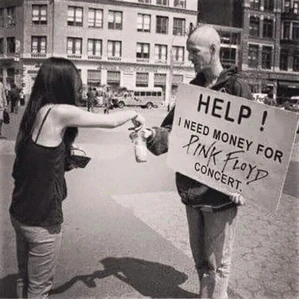 HELP !
I NEED MONEY FOR
PINK FLOYD
CONCERT.